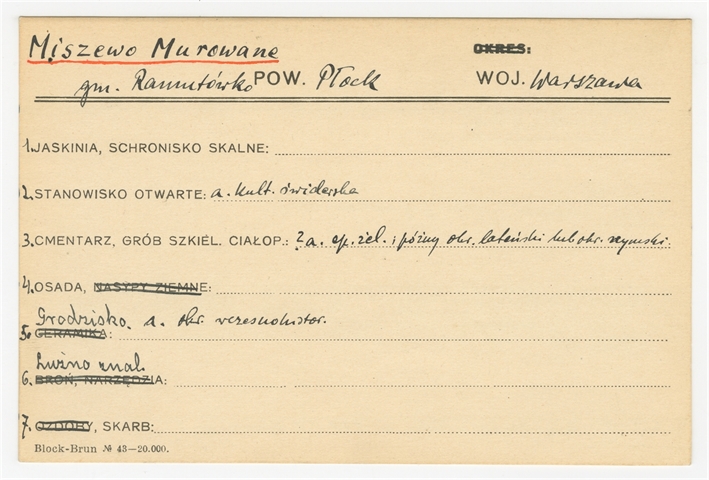 Miszewo Murowane OKRES:
gm. Ramutówko POW. Płock WOJ. Warszawa
1. JASKINIA, SCHRONISKO SKALNE:
2. STANOWISKO OTWARTE: a. kult. świderska
3. CMENTARZ, GRÓB SZKIEL. CIAŁOP.: ? a. ep. żel. : późny okr. lateński lub okr. rzymski.
4. OSADA, NASYPY ZIEMNE:
Grodzisko. a. okr. wczesnohistor.
5. CERAMIKA:
Luźno znal.
6. BROŃ, NARZĘDZIA:
7. OZDOBY, SKARB:
Block-Brun № 43—20.000.